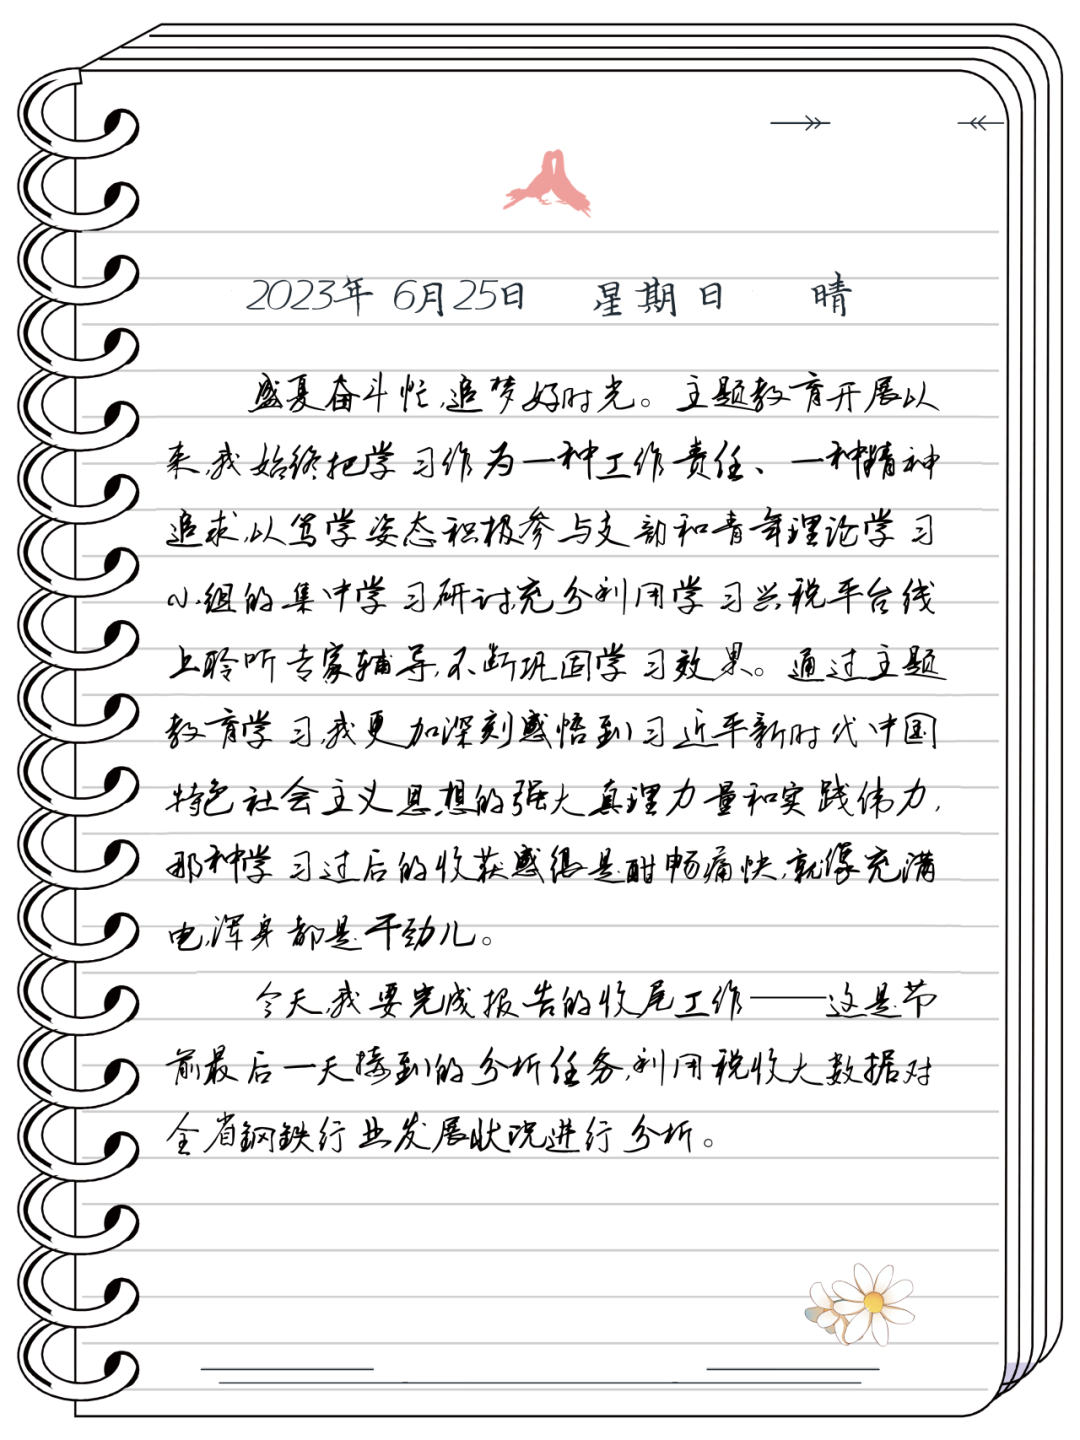 2023年 6月25日 星期日 晴
盛夏奋斗忙,追梦好时光。主题教育开展以
来,我始终把学习作为一种工作责任、一种精神
追求,以笃学姿态积极参与支部和青年理论学习
小组的集中学习研讨,充分利用学习兴税平台线
上聆听专家辅导,不断巩固学习效果。通过主题
教育学习,我更加深刻感悟到习近平新时代中国
特色社会主义思想的强大真理力量和实践伟力,
那种学习过后的收获感很是酣畅痛快,就像充满
电,浑身都是干劲儿。
今天,我要完成报告的收尾工作——这是节
前最后一天接到的分析任务,利用税收大数据对
全省钢铁行业发展状况进行分析。